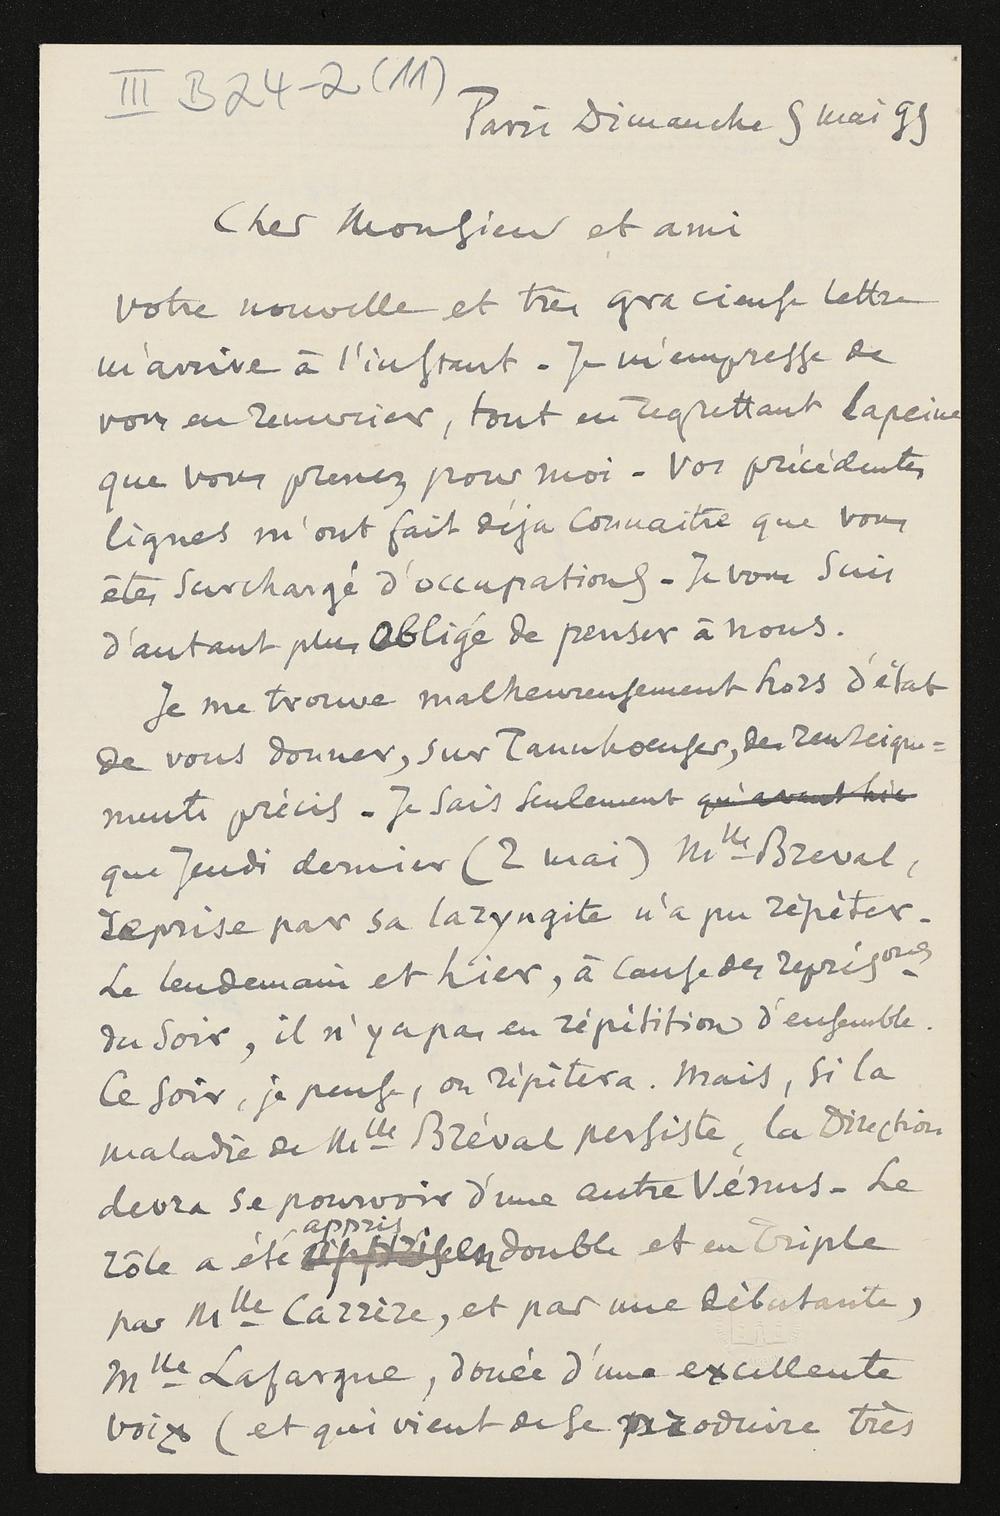 III B 24-2 (11)
Paris Dimanche 5 mai 95
Cher Monsieur et ami
Votre nouvelle et très gracieuse lettre
m'arrive à l'instant - Je m'empresse de
vous en remercier, tout en regrettant la peine
que vous prenez pour moi - Vos précédentes
lignes m'ont fait déja connaitre que vous
êtes surchargé d'occupations - Je vous suis
d'autant plus obligé de penser à nous.
Je me trouve malheureusement hors d'état
de vous donner, sur Tannhoeuser, des renseigne=
ments précis - Je sais seulement qu'avant hier
que Jeudi dernier (2 mai) Mlle Breval,
reprise par sa laryngite n'a pu répéter -
Le lendemain et hier, à cause des représons
du soir, il n'y a pas eu répétition d'ensemble.
Ce soir, je pense, on répétera. Mais, si la
maladie de Mlle Bréval persiste, la Direction
devra se pourvoir d'une autre Vénus - Le
appris
rôle a été en double et en triple
par Mlle Carrère, et par une débutante,
Mlle Lafargue, douée d'une excellente
voix (et qui vient de se produire très